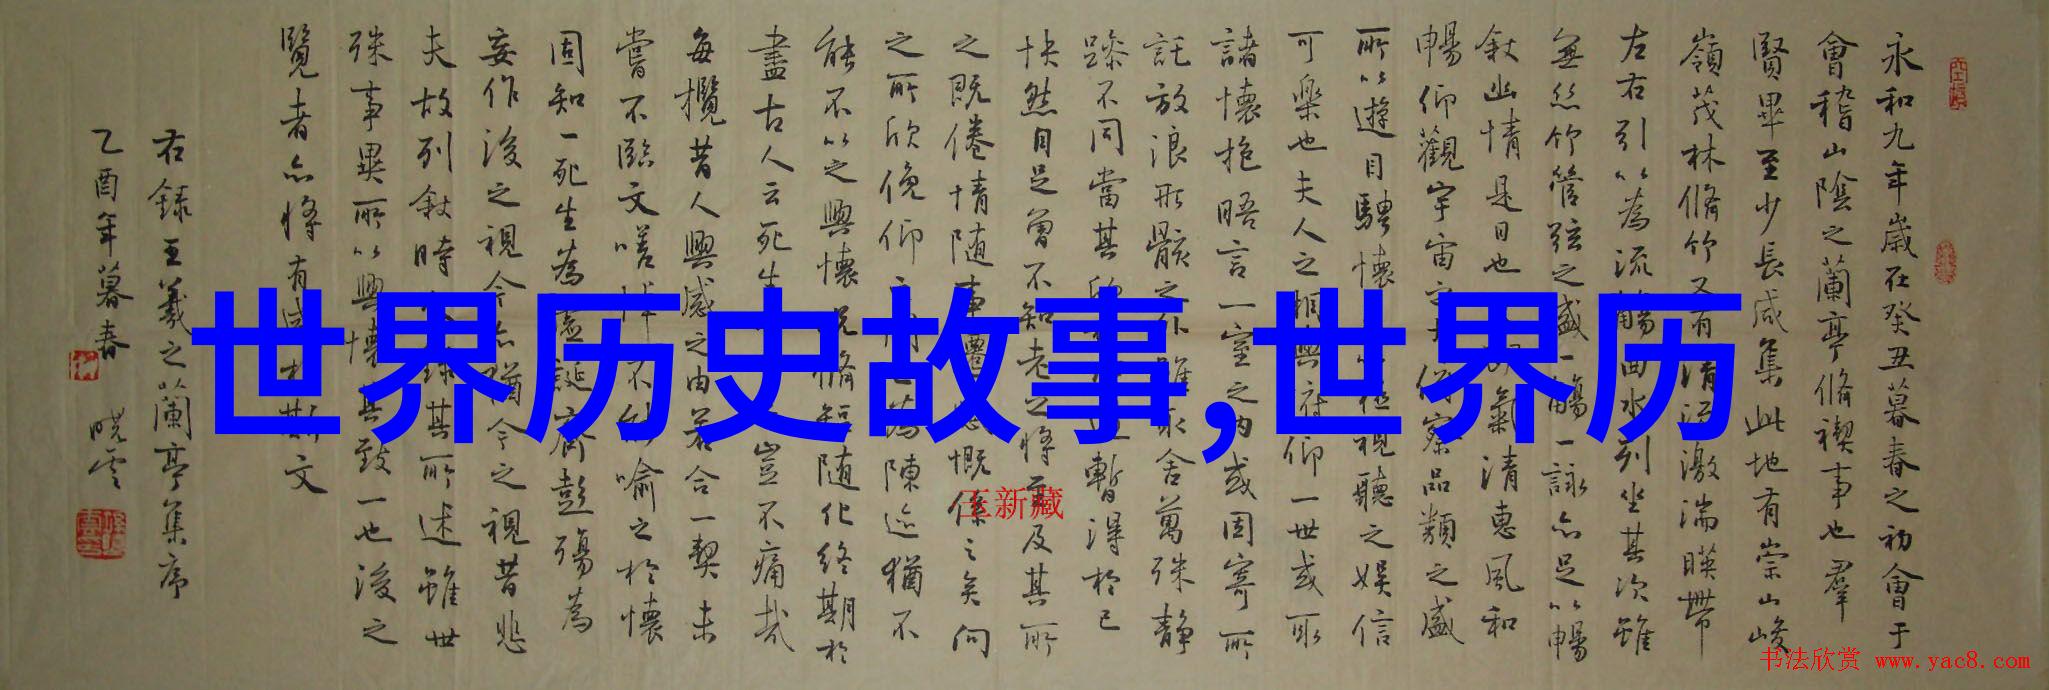 永和九年歲在癸丑暮春之初會于
會稽山陰之蘭亭脩禊事也羣
賢畢至少長咸集此地有崇山峻
嶺茂林脩竹又有清流激湍暎帶
左右引以為流觴曲水列坐其次雖
無絲竹管弦之盛一觴一詠亦足以暢
敘幽情是日也氣清惠風和
暢仰觀宇宙之俯察品類之盛
所以遊目騁懷極視聽之娛信
可樂也夫人之相與俯仰一世或取
諸懷抱晤言一室之內或因寄所
託放浪形骸之外雖取舍萬殊靜
躁不同當其欣暫得於己
快然自足曾不知老之將至及其所
之既倦情随事遷感慨係之矣向
之所欣俛仰之間為陳迹猶不
能不以之興懷況脩短随化終期於
盡古人云死生豈不痛哉
每攬昔人興感之由若合一契未
嘗不臨文嗟悼不能喻之於懷
固知一死生為虛誕齊彭殤為
妄作後之視今亦猶今之視昔悲
夫故列敘時錄其所述雖世
殊事異所以興懷其致一也後之
覽者亦將有感於斯文
右錄王羲之蘭亭集序
乙酉年暮春 曉雲
世界历史故事,世界历
王新藏
书法欣赏 www.yac8.com